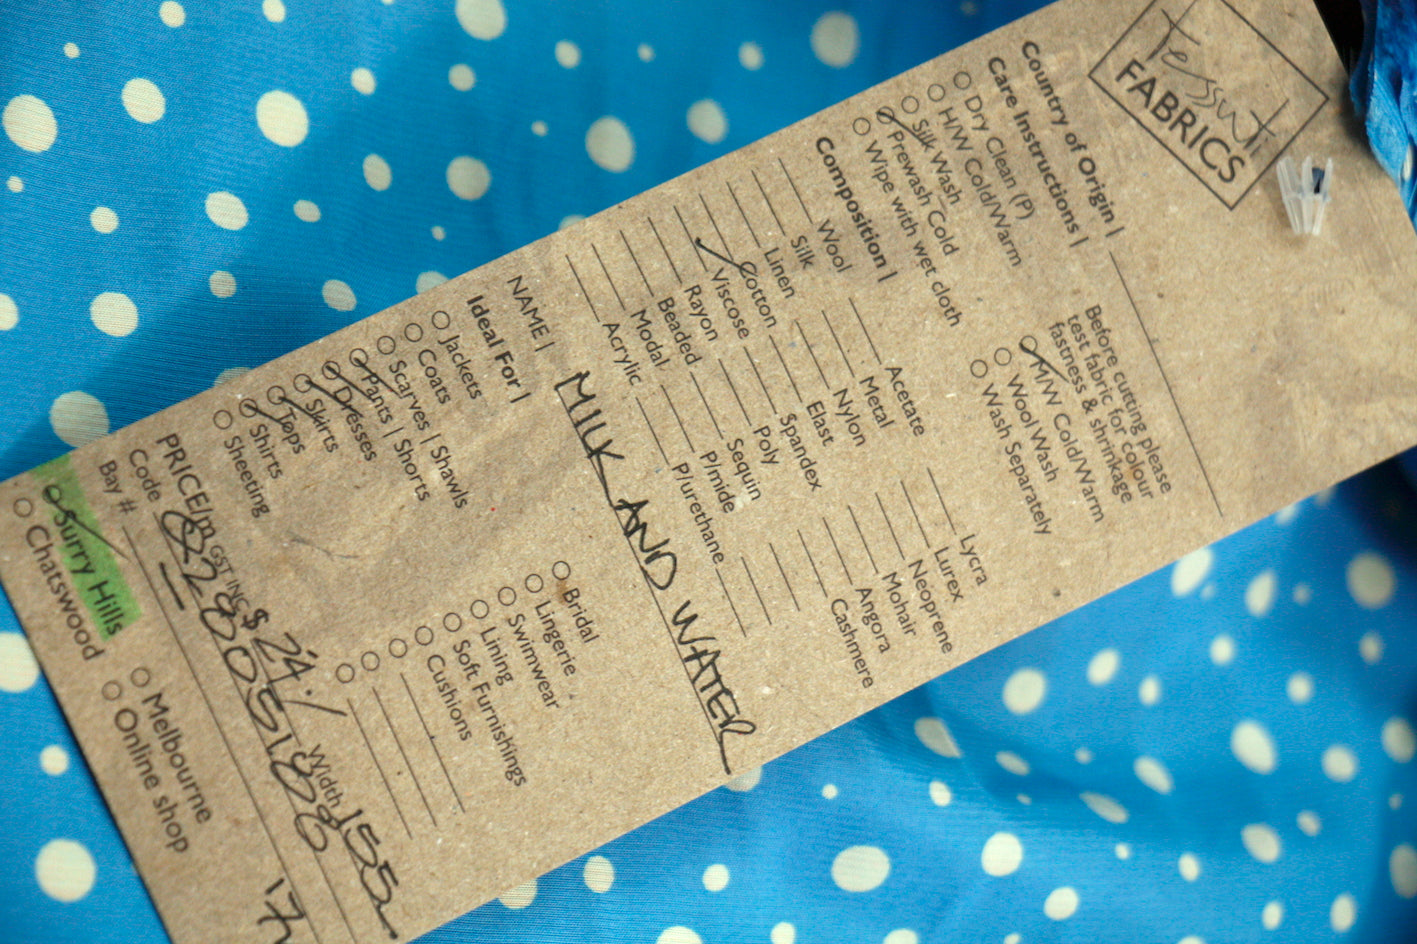 Tessuti
FABRICS
Country of Origin |
Care Instructions |
Dry Clean (P)
H/W Cold/Warm
Silk Wash
Prewash Cold
Wipe with wet cloth
Before cutting please
test fabric for colour
fastness & shrinkage
M/W Cold/Warm
Wool Wash
Wash Separately
Composition |
Wool
Silk
Linen
Cotton
Viscose
Rayon
Beaded
Modal
Acrylic
Acetate
Metal
Nylon
Elast
Spandex
Poly
Sequin
P/mide
P/urethane
Lycra
Lurex
Neoprene
Mohair
Angora
Cashmere
NAME | MILK AND WATER
Ideal For |
Jackets
Coats
Scarves | Shawls
Pants | Shorts
Dresses
Skirts
Tops
Shirts
Sheeting
Bridal
Lingerie
Swimwear
Lining
Soft Furnishings
Cushions
PRICE/m GST INC $ 24.- Width 155
Code
Bay # 17
Surry Hills
Chatswood
Melbourne
Online shop